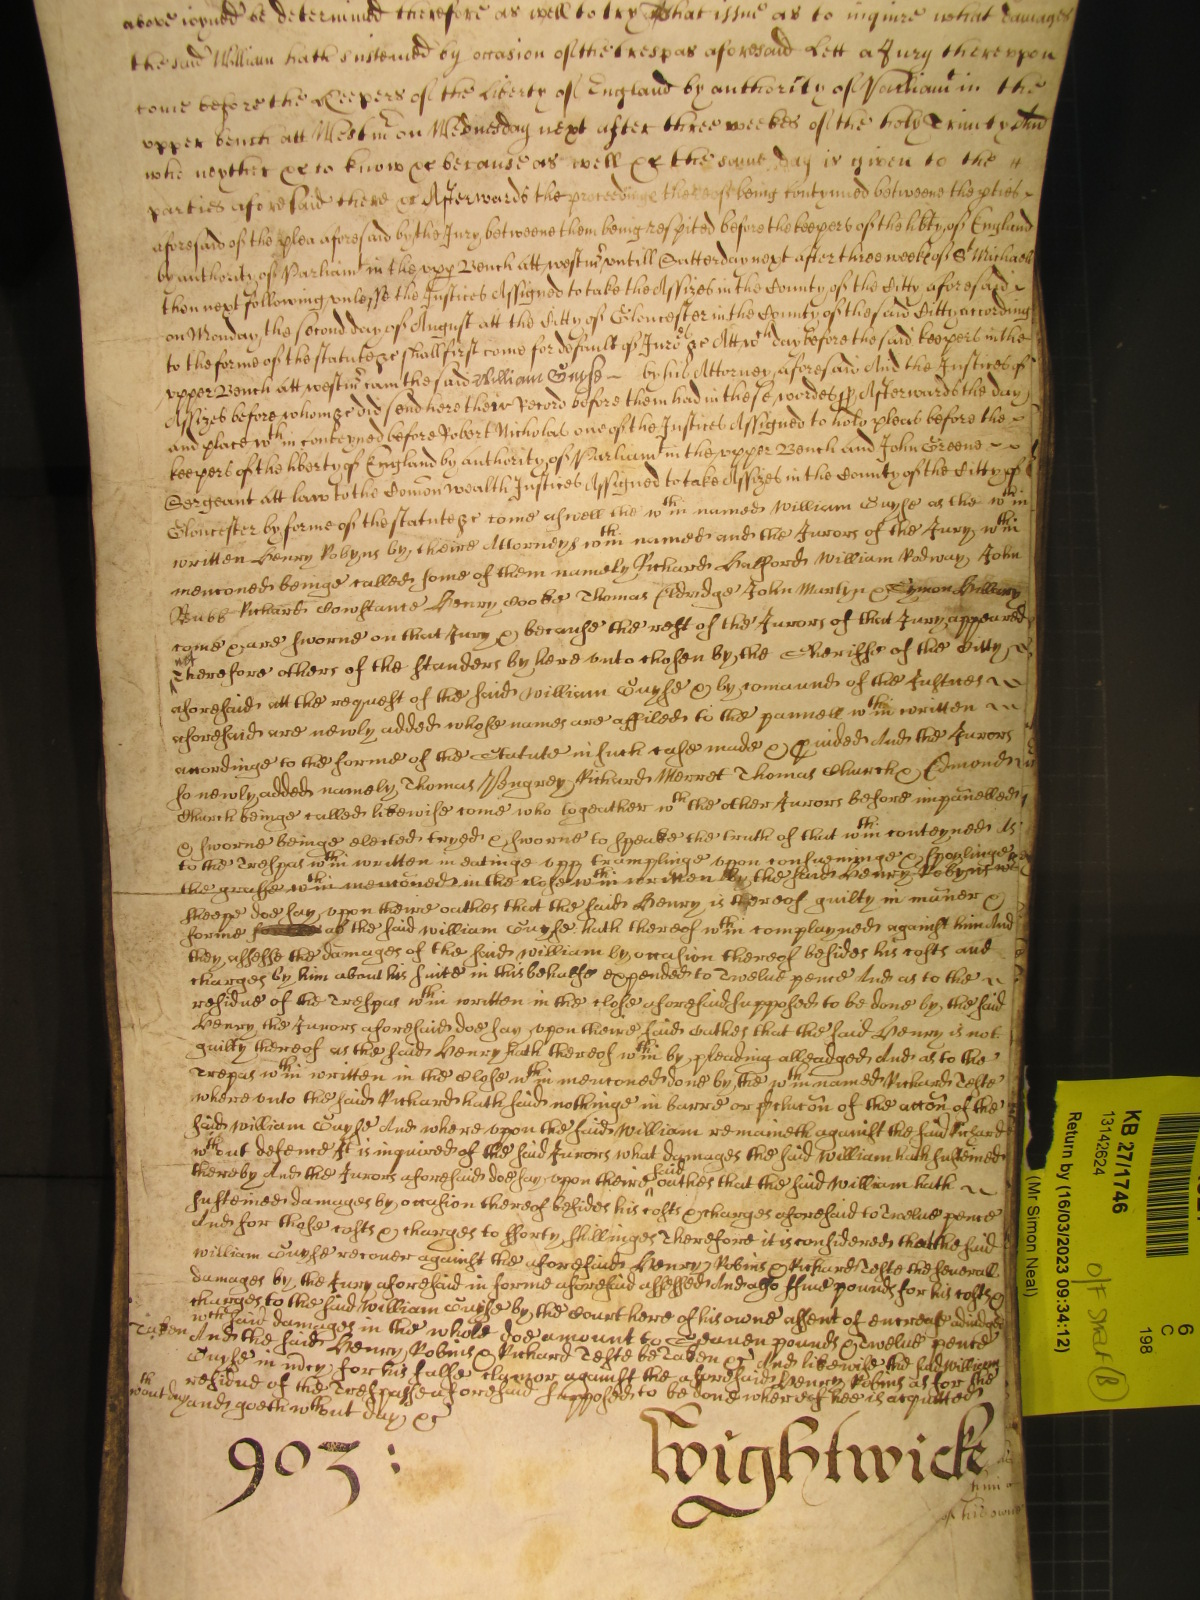 above ioyned be determined therefore as well to try that issue as to inquire what damages
the said William hath susteined by occasion of the trespas aforesaid Lett a Jury thereupon
come before the Keepers of the liberty of England by authority of Parliamt in the
upper bench att Westmr on Wednesday next after three weekes of the holy Trinity And
who neyther &c to know &c because as well &c the same day is given to the
parties aforesaid there &c Afterwards the proceedinge thereof being contynued betweene the pties
aforesaid of the plea aforesaid by the Jury betweene them being respited before the keepers of the libty of England
by authority of Parliamt in the upp Bench att westmr untill Satterday next after three weekes of St Michaell
then next following unlesse the Justices Assigned to take the Assizes in the County of the Citty aforesaid
on Monday the second day of August att the Citty of Gloucester in the County of the said Citty according
to the forme of the statute &c shall first come for default of Juros &c Att wch day before the said keepers in the
upper Bench att westmr came the said William Guyse by his Attorney aforesaid And the Justices of
Assizes before whom &c did send here their Record before them had in these wordes ss Afterwards the day
and place wthin conteyned before Robert Nicholas one of the Justices Assigned to hold pleas before the
keepers of the liberty of England by authority of Parliamt in the upper Bench and John Greene
Sergeant att law to the Comonwealth Justices Assigned to take Assizes in the County of the Citty of
Gloucester by forme of the statute &c come aswell the wthin named William Guyse as the wthin
written Henry Robyns by theire Attorneys wthin named and the Jurors of the Jury wthin
menconed beinge called some of them namely Richard Halford William Rodway John
Bubb Richard Conftance Henry Cooke Thomas Eldridge John Martyn & Symon
come & are sworne on that Jury & because the rest of the Jurors of that Jury appeared
not Therefore others of the standers by here unto chosen by the Sheriffe of the Citty
aforesaid att the request of the said William Guyse & by comaund of the Justices
aforesaid are newly added whose names are affiled to the pannell wthin written
accordinge to the forme of the Statute in such case made & pvided And the Jurors
so newly added namely Thomas Richard Merret Thomas Church & Edmond
Church beinge called likewise come who togeather wth the other Jurors before impanelled
& sworne beinge elected tryed & sworne to speake the truth of that wthin conteyned As
to the Trespas wthin written in eatinge upp tramplinge upon consueminge & spoylinge
the grasse wthin menconed in the close wthin written by the said Henry Robyns wth
sheepe doe say upon theire oathes that the said Henry is thereof guilty in maner &
forme as the said William Guyse hath thereof wthin complayned against him And
they assesse the damages of the said William by occasion thereof besides his costs and
charges by him about his suite in this behalfe expended to Twelve pence And as to the
residue of the Trespas wthin written in the close aforesaid supposed to be done by the said
Henry the Jurors aforesaid doe say upon theire said oathes that the said Henry is not
guilty thereof as the said Henry hath thereof wthin by pleading alleadged And as to the
Trepas wthin written in the Close wthin menconed done by the wthin named Richard Teste
where unto the said Richard hath said nothinge in barre or pclucon of the accon of the
said William Guyse And where upon the said William remaineth against the said Richard
wthout defence It is inquired of the said Jurors what damages the said William hath susteined
thereby And the Jurors aforesaid doe say upon theire said oathes that the said William hath
susteined damages by occasion thereof besides his costs & charges aforesaid to Twelve pence
And for those costs & charges to fforty shillinges Therefore it is considered that the said
William Guyse recover against the aforesaid Henry Robins & Richard Teste the severall
damages by the Jury aforesaid in forme aforesaid assessed And also ffive pounds for his costs &
charges to the said William Guyse by the Court here of his owne assent of encrease adiudged
wch said damages in the whole doe amount to Seaven pounds & Twelve pence
Taken And the said Henry Robins & Richard Teste be Taken &c And likewise the said William
Guyse in mcy for his false clamor against the aforesaid Henry Robins as for the
residue of the Trespasse aforesaid supposed to be done whereof hee is acquitted
wthout day and goeth wthout day &c
903: Wightwick
of his owne
6
C
198
KB 27/1746
13142624
O/F Small (B)
Return by (16/03/2023 09:34:12)
(Mr Simon Neal)